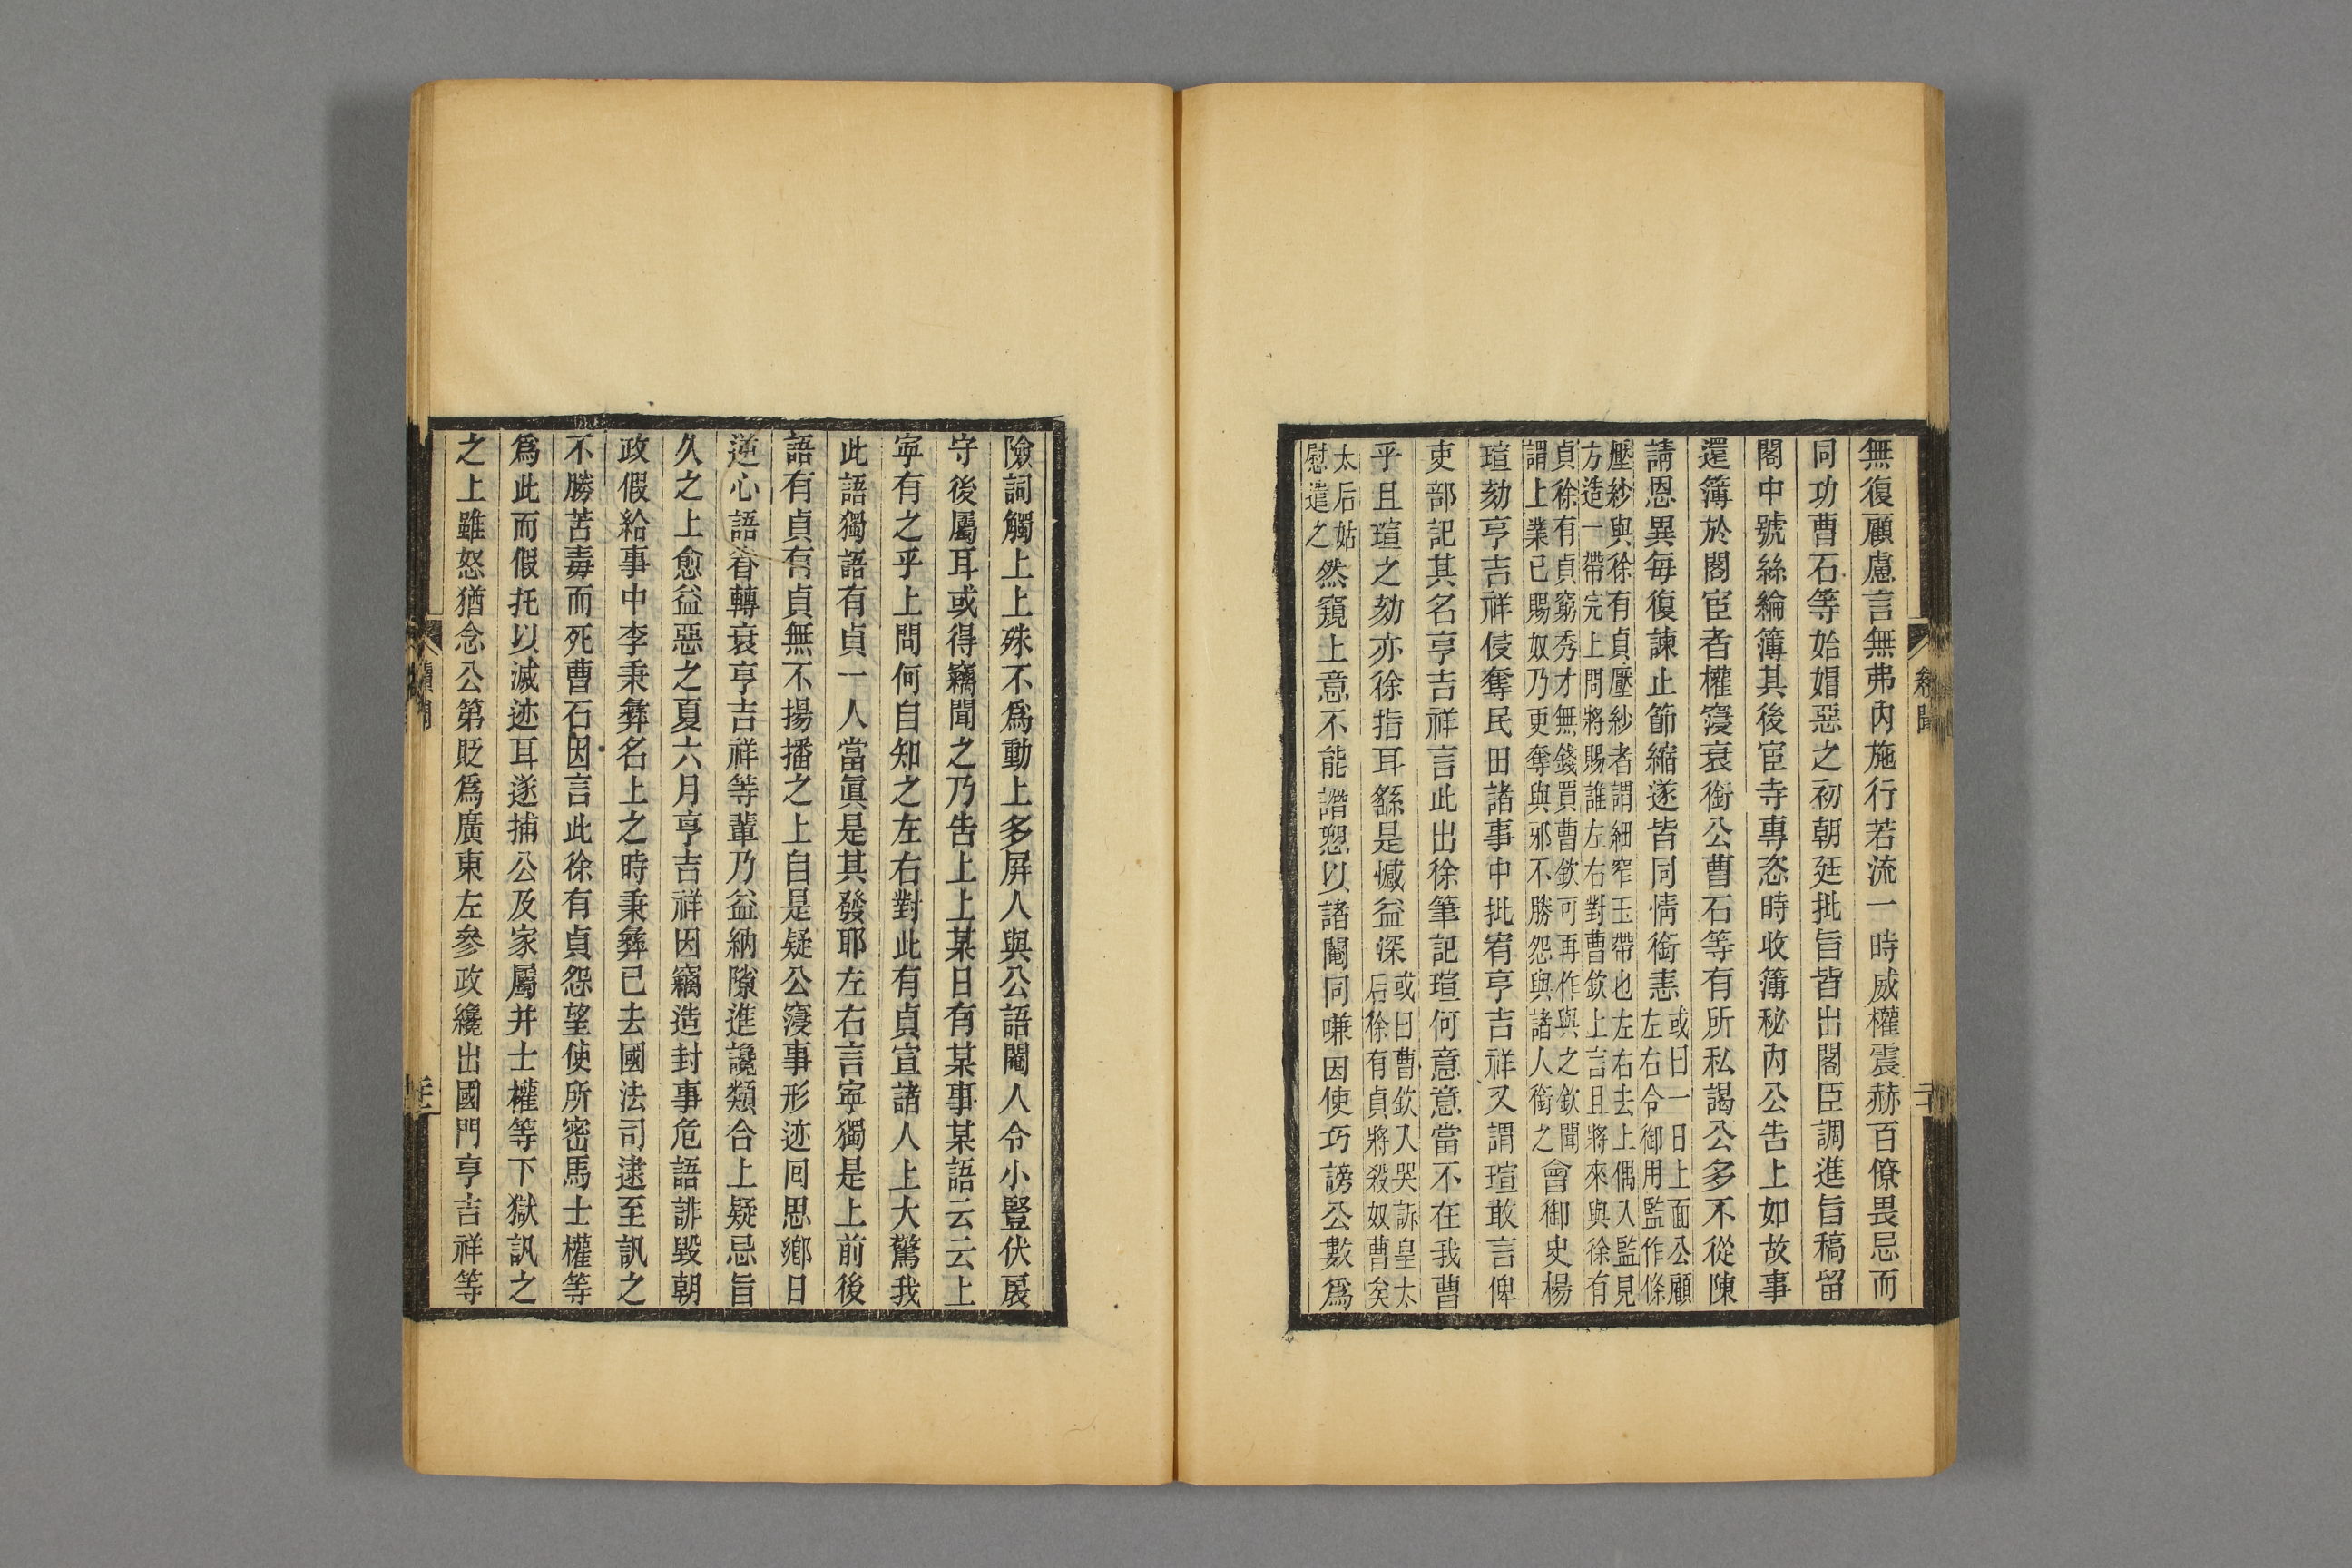 無復顧慮言無弗內施行若流一時威權震赫百僚畏忌而
同功曹石等始媢惡之初朝廷批旨皆出閣臣調進旨稿留
閣中號絲綸簿其後宦寺專恣時收簿秘內公告上如故事
還簿於閣宦者權寖衰銜公曹石等有所私謁公多不從陳
請恩異每復諫止節縮遂皆同情銜恚
或曰一日上面公顧
左右令御用監作條
壓紗與徐有貞壓紗者謂細窄玉帶也左右去上偶人監見
方造一帶完上問將賜誰左右對曹欽上言且將來與徐有
貞徐有貞窮秀才無錢買曹欽可再作與之欽聞
謂上業已賜奴乃更奪與邪不勝怨與諸人銜之
會御史楊
瑄劾亨吉祥侵奪民田諸事中批宥亨吉祥又謂瑄敢言俾
吏部記其名亨吉祥言此出徐筆記瑄何意意當不在我曹
乎且瑄之劾亦徐指耳繇是憾益深
或曰曹欽人哭訴皇太
后徐有貞將殺奴曹矣
太后姑
慰遣之
然窺上意不能譖愬以諸閹同嗛因使巧謗公數為
險詞觸上上殊不為動上多屏人與公語閹人令小豎伏扆
守後屬耳或得竊聞之乃告上上某日有某事某語云云上
寧有之乎上問何自知之左右對此有貞宣諸人上大驚我
此語獨語有貞一人當眞是其發耶左右言寧獨是上前後
語有貞有貞無不揚播之上自是疑公寖事形迹回思鄉日
逆心語眷轉衰亨吉祥等輩乃益納隙進讒類合上疑忌旨
久之上愈益惡之夏六月亨吉祥因竊造封事危語誹毀朝
政假給事中李秉彝名上之時秉彝已去國法司逮至訊之
不勝苦毒而死曹石因言此徐有貞怨望使所密馬士權等
為此而假托以滅迹耳遂捕公及家屬并士權等下獄訊之
之上雖怒猶念公第貶為廣東左參政纔出國門亨吉祥等